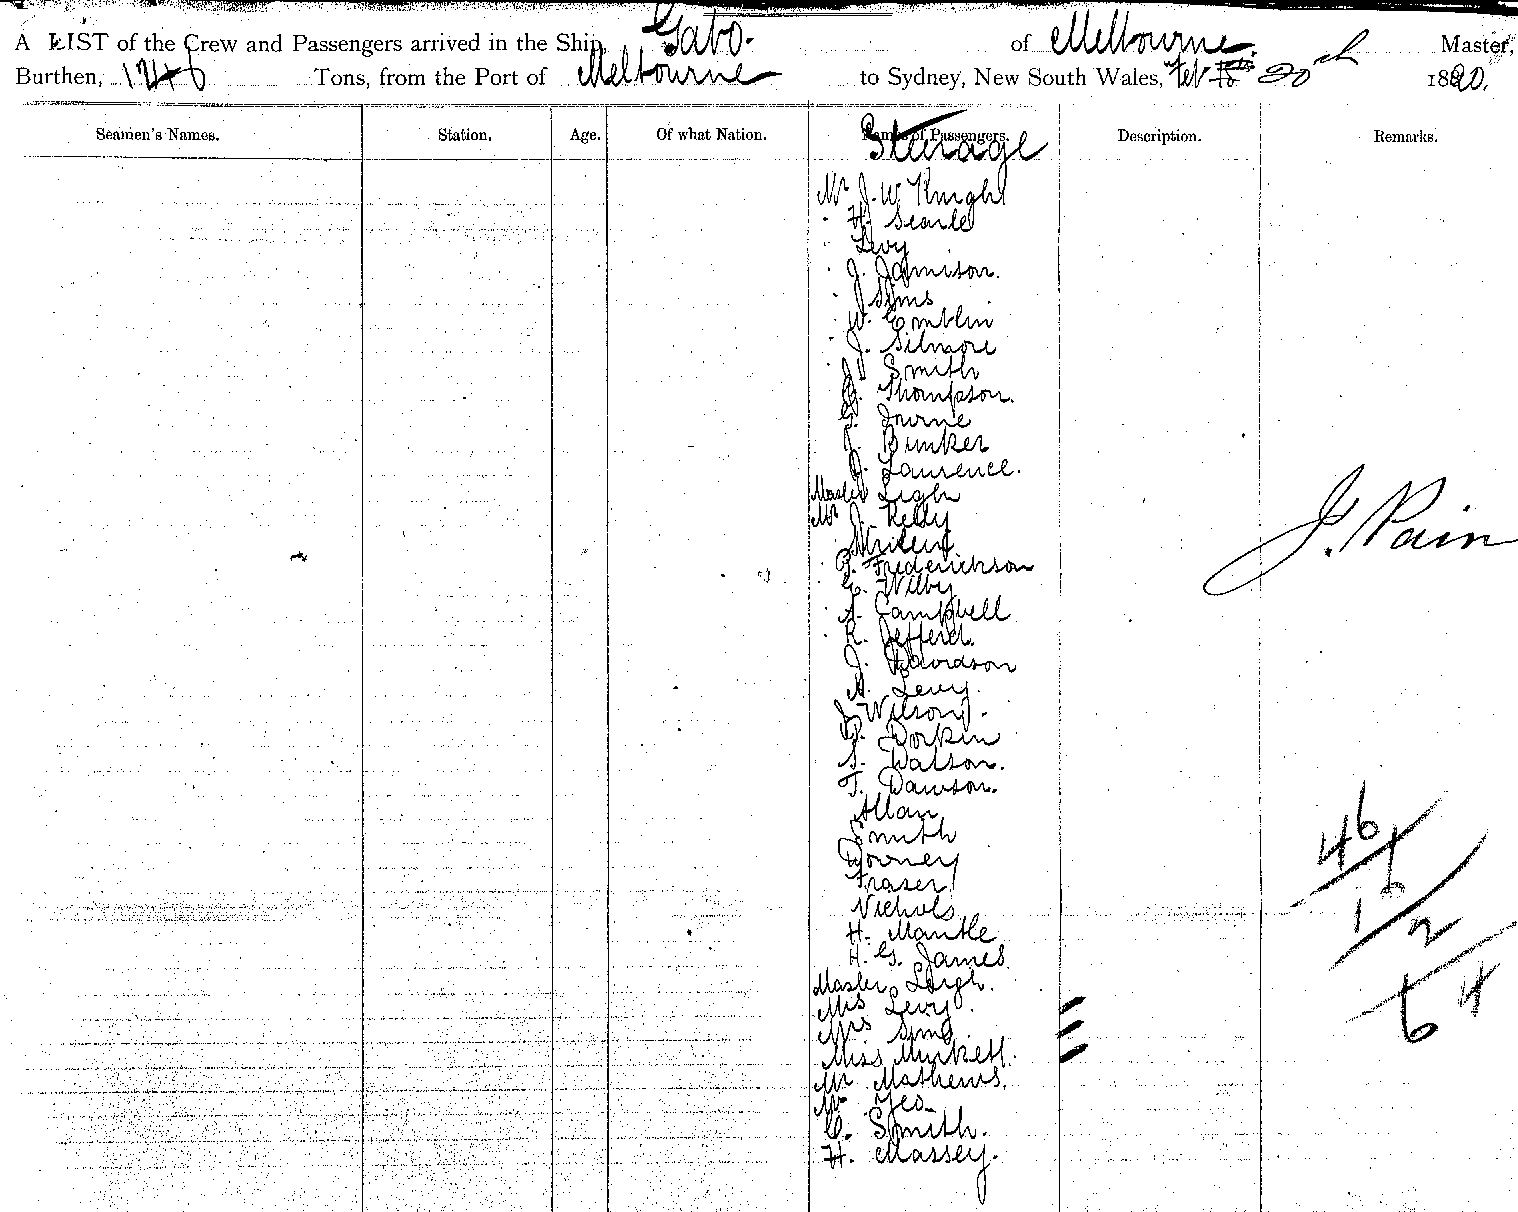 A LIST of the Crew and Passengers arrived in the Ship, Gabo. of Melbourne. Master,
Burthen, 1246 Tons, from the Port of Melbourne to Sydney, New South Wales, Feb 20th 1890.
Seamen's Names. Station. Age. Of what Nation. Names of Passengers. Description. Remarks.
Steerage
Mr J. W Knight
" H. Searle
" Levy
" J. Jamison.
" J Sims
W. Emblin
" J. Gilmore
J Smith
G. Thompson.
G.
J. Bunker
J. Laurence.
Master Leigh
Mr J. Kelly

J. Frederickson
E. Wilby
" A. Campbell
" R. Jefferd.
J. Davidson
A. Levy.
J. Wilson.
J. Dorkin
S. Watson.
T. Dawson.
Allan
Smith
Downey
Fraser
Nichols
H. Mantle
H. G. James.
Master Leigh.
Mrs Levy.
Mrs Sims
Miss
Mr Mathews.
Mr Yeo
C. Smith.
H. Massey.
J. Pain
46
6
1 2
6 4